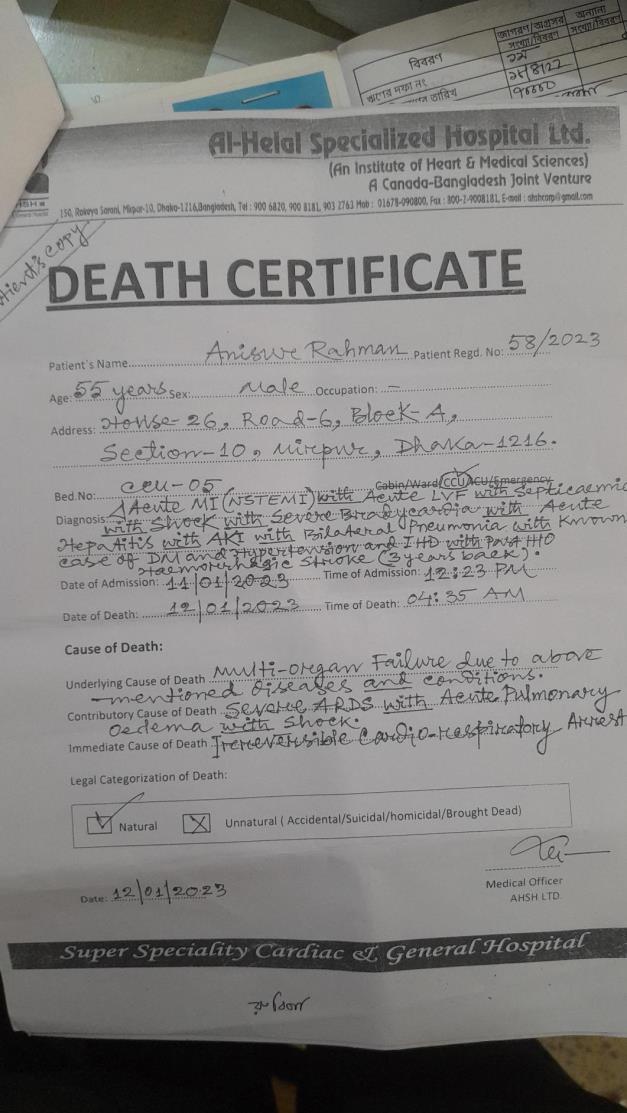 জাগরণ/অগ্রসর
সংখ্যা/বিবরণ
অন্যান্য
সংখ্যা/বিবরণ
বিবরণ
ঋণের দফা নং
২৮/৪/২২
তারিখ
৭০০০০
Al-Helal Specialized Hospital Ltd.
(An Institute of Heart & Medical Sciences)
A Canada-Bangladesh Joint Venture
150, Rokeya Sarani, Mirpur-10, Dhaka-1216,Bangladesh, Tel : 900 6820, 900 8181, 903 2763 Mob : 01678-090800, Fax : 800-2-9008181, E-mail : ahshcorp@gmail.com
copy
DEATH CERTIFICATE
Patient's Name Anisur Rahman Patient Regd. No: 58/2023
Age: 55 years Sex: Male Occupation: –
Address: House-26, Road-6, Block-A,
Section-10, Mirpur, Dhaka-1216.
Bed.No: CCU-05 Cabin/Ward/CCU/ICU/Emergency
Diagnosis: Acute MI (NSTEMI) with Acute LVF with Septicaemic
with Shock with Severe Bradycardia with Acute
Hepatitis with AKI with Bilateral Pneumonia with Known
case of DM and Hypertension and IHD with Past H/O
Haemorrhagic Stroke (3 years back).
Date of Admission: 11/01/2023 Time of Admission: 12:23 PM
Date of Death: 12/01/2023 Time of Death: 04:35 AM
Cause of Death:
Underlying Cause of Death Multi-organ Failure due to above
-mentioned diseases and conditions.
Contributory Cause of Death Severe ARDS with Acute Pulmonary
Oedema with Shock.
Immediate Cause of Death Irreversible Cardio-respiratory Arrest
Legal Categorization of Death:
Natural Unnatural ( Accidental/Suicidal/homicidal/Brought Dead)
Medical Officer
AHSH LTD.
Date: 12/01/2023
Super Speciality Cardiac & General Hospital